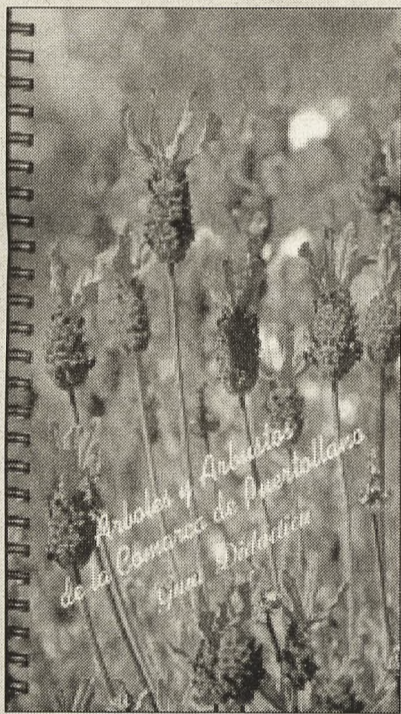 Arboles y Arbustos
de la Comarca de Puertollano
Guia Didáctica